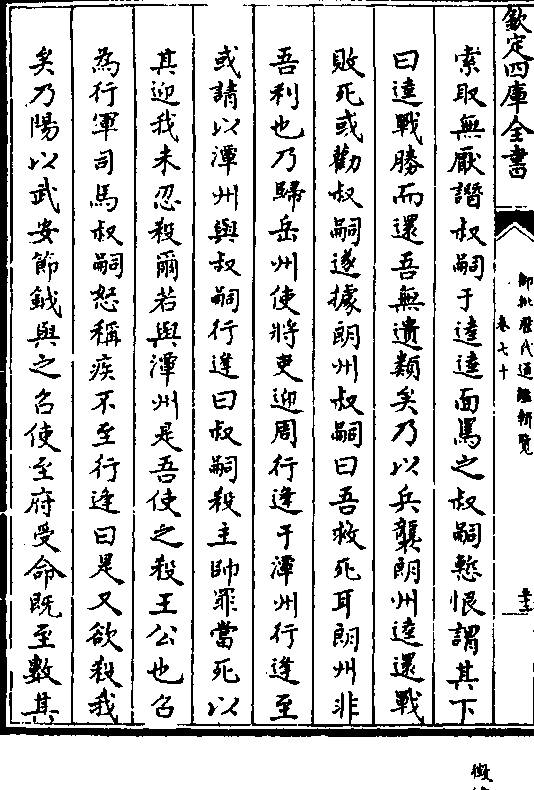 欽定四庫全書
御批歷代通鑑輯覽
卷七十
索取無厭譖叔嗣于逵逵面罵之叔嗣慙恨謂其下
曰逵戰勝而還吾無遺類矣乃以兵襲朗州逵還戰
敗死或勸叔嗣遂據朗州叔嗣曰吾救死耳朗州非
吾利也乃歸岳州使將吏迎周行逢于潭州行逢至
或請以潭州與叔嗣行逢曰叔嗣殺主帥罪當死以
其迎我未忍殺爾若與潭州是吾使之殺王公也召
為行軍司馬叔嗣怒稱疾不至行逢曰是又欲殺我
矣乃陽以武安節鉞與之召使至府受命既至數其